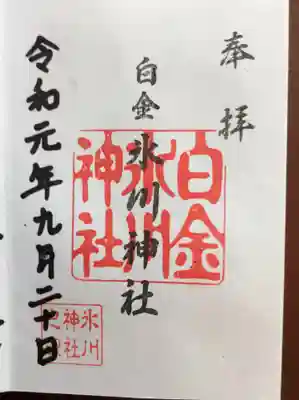 奉拝
白金氷川神社
白金氷川神社
令和元年九月二十日